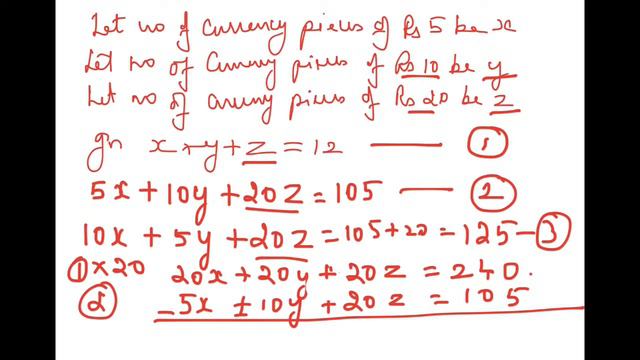 Let no of currency pieces of Rs 5 be x
Let no of Curreny pieces of Rs 10 be y
Let no of curreny pieces of Rs 20 be z
gn x + y + z = 12 —— ①
5x + 10y + 20z = 105 —— ②
10x + 5y + 20z = 105 + 20 = 125 — ③
① × 20 20x + 20y + 20z = 240.
② -5x ± 10y + 20z = 105